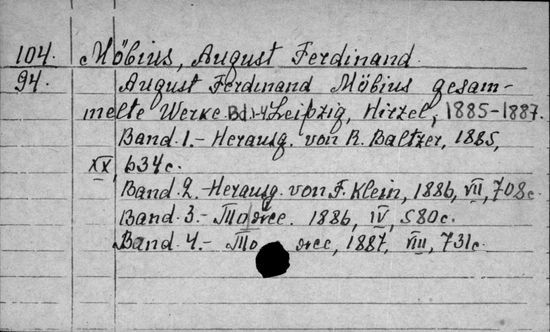 104. Möbius, August Ferdinand.
94. August Ferdinand Möbius gesam-
melte Werke. Bd. 1-4 Leipzig, Hirzel, 1885-1887.
Band. 1. - Herausg. von R. Baltzer, 1885,
XX, 634 с.
Band. 2. - Herausg. von F. Klein, 1886, VII, 708 с.
Band 3. - То же. 1886, IV, 580 с.
Band. 4. - То же, 1887, VIII, 731 с.